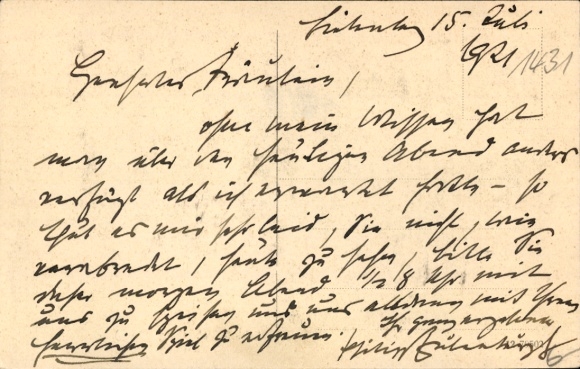 Liebenberg 15. Juli
1921 1431
Geehrtes Fräulein,
ohne mein Wissen hat
man über den heutigen Abend anders
verfügt als ich erwartet hatte – so
thut es mir sehr leid, Sie nicht, wie
verabredet, heute zu sehen, bitte Sie
daher morgen Abend 1/2 8 Uhr mit
uns zu speisen und uns alsdann mit Ihrem
herrlichen Spiel zu erfreuen. Ihr ganz ergebener
Philipp Eulenburg